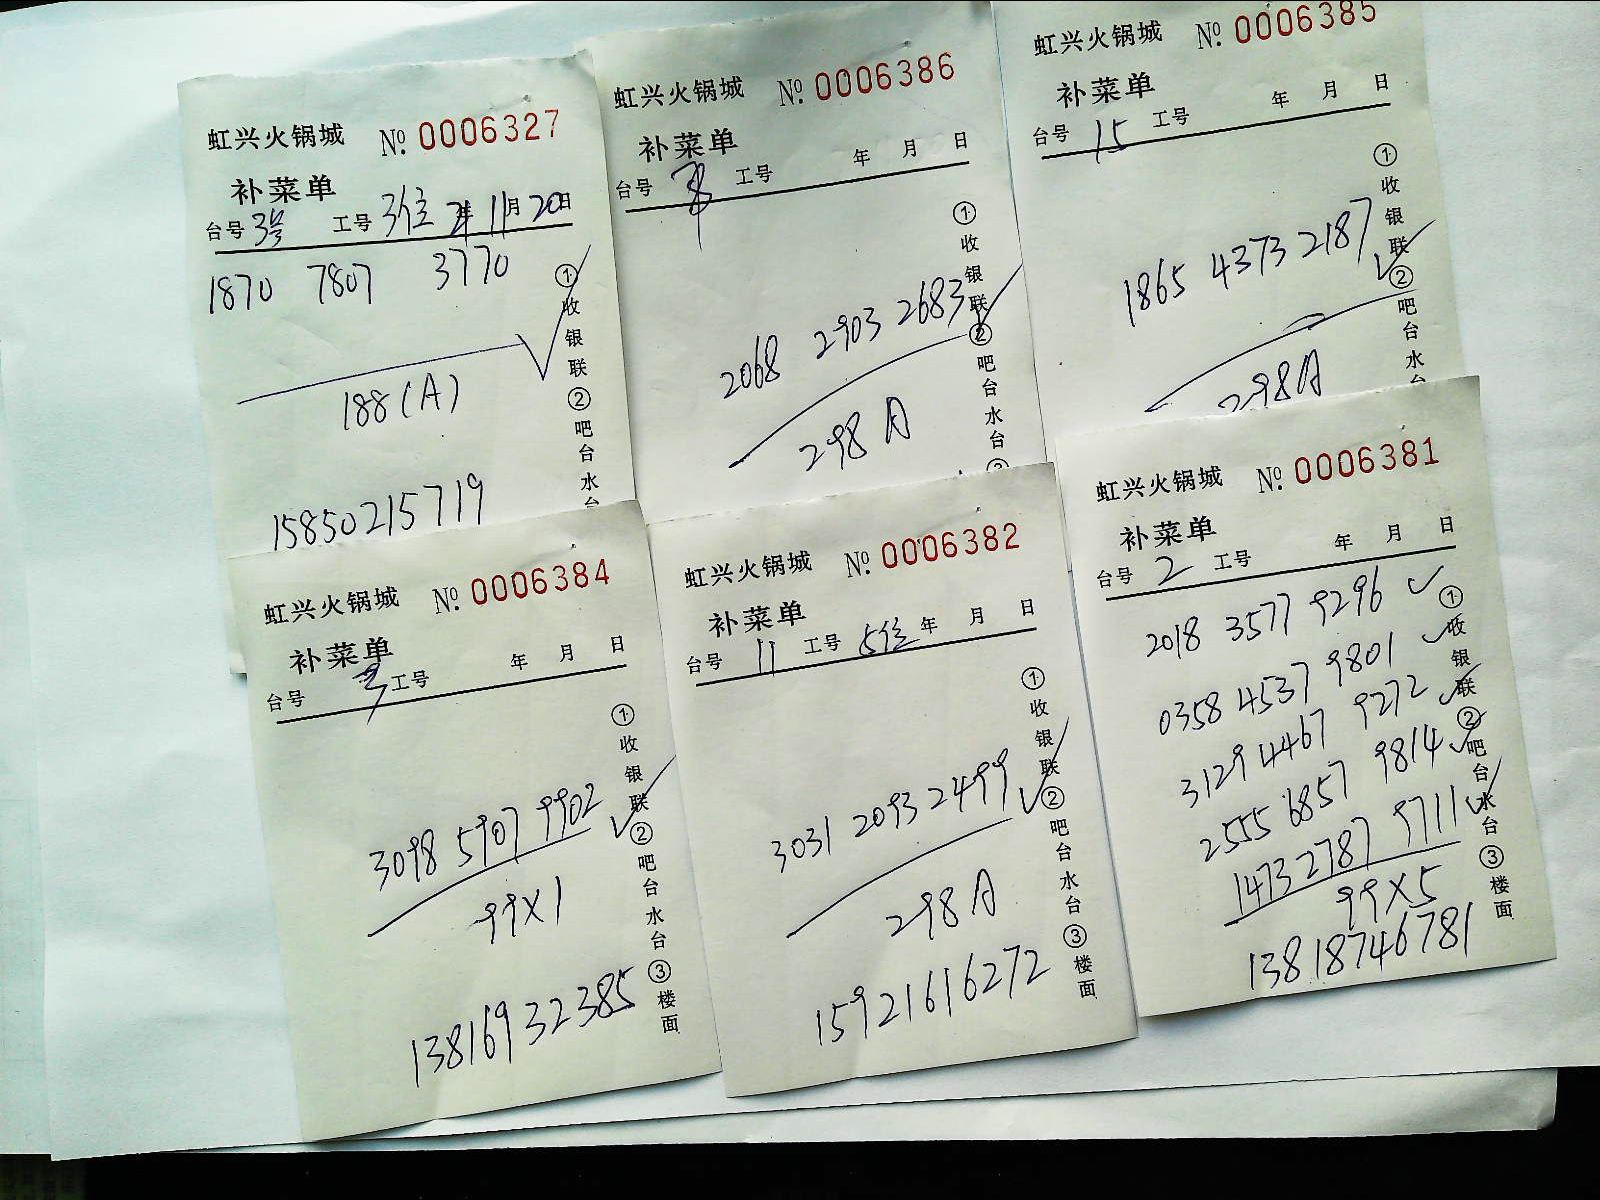 虹兴火锅城 No. 0006327
补菜单
台号 3号 工号 3位 年 11月 20日
1870 7807 3770
188(A)
15850215719
①收银联②吧台水台
虹兴火锅城 No. 0006386
补菜单
台号 工号 年 月 日
2068 2903 2683
298 A
①收银联②吧台水台③
虹兴火锅城 No. 0006385
补菜单
台号 15 工号 年 月 日
1865 4373 2187
298A
①收银联②吧台水台
虹兴火锅城 No. 0006384
补菜单
台号 3 工号 年 月 日
3098 5907 9902
99X1
13816932385
①收银联②吧台水台③楼面
虹兴火锅城 No. 0006382
补菜单
台号 11 工号 5位 年 月 日
3031 2093 2499
298 A
15921616272
①收银联②吧台水台③楼面
虹兴火锅城 No. 0006381
补菜单
台号 2 工号 年 月 日
2018 3577 9296
0358 4537 9801
3129 4467 9272
2555 6857 9814
1473 2787 9711
99X5
13818746781
①收银联②吧台水台③楼面